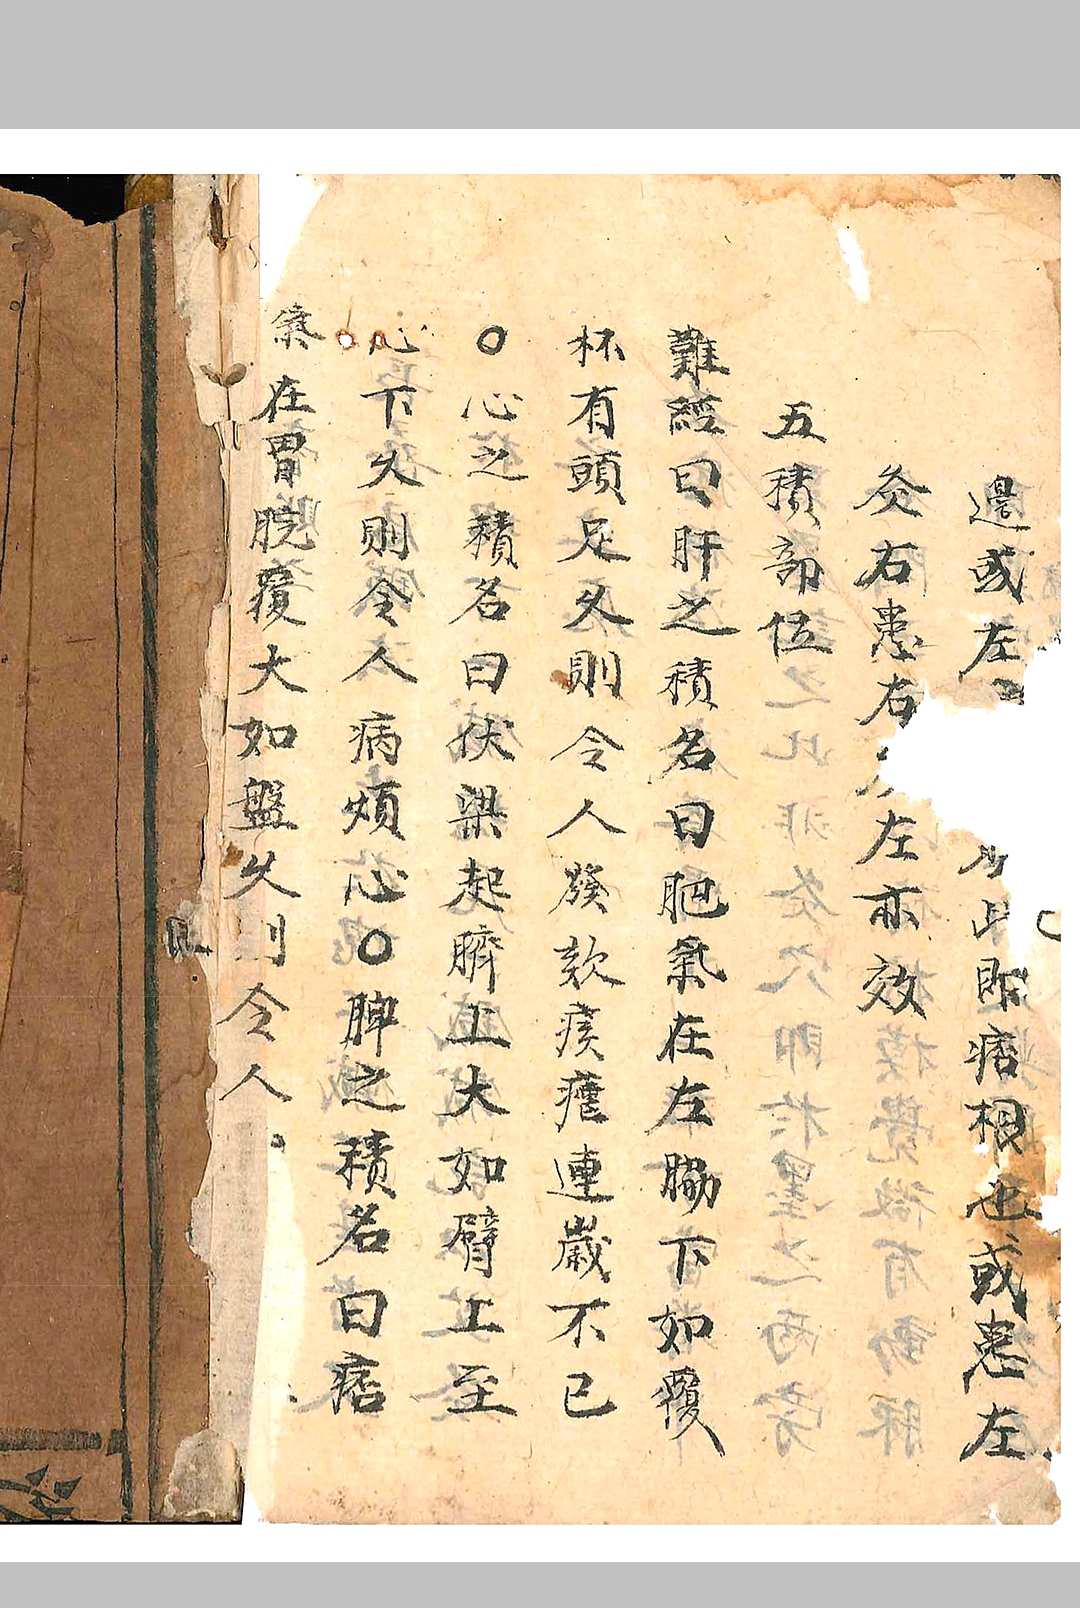 邊或左此即痞根也或患左
灸右患右左亦效
五積部位
難經曰肝之積名曰肥氣在左脇下如覆
杯有頭足久則令人發欬痎瘧連歲不已
○心之積名曰伏梁起臍上大如臂上至
心下久則令人病煩心○脾之積名曰痞
氣在胃脘覆大如盤久則令人